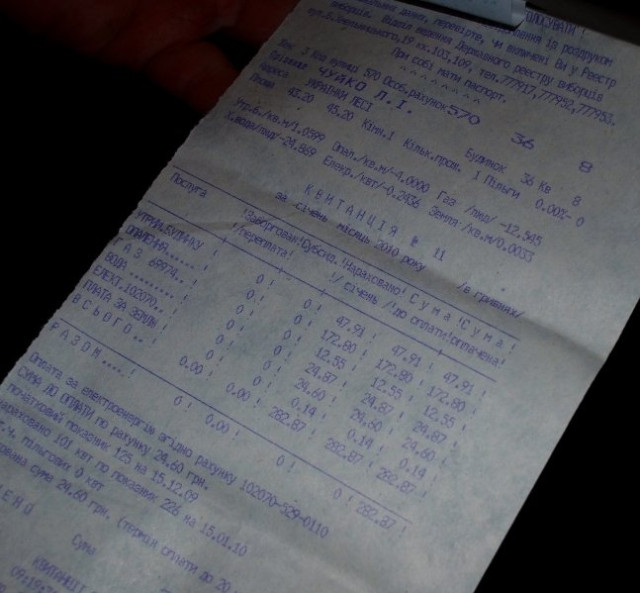 ГОЛОСУВАТИ !
перевірте, чи включені Ви у Реєстр
виборців. Відділ ведення Державного реєстру виборців
вул.Б.Хмельницького,19 кк.103,109, тел.777917,777952,777953.
При собі мати паспорт.
^ ^ ^ ^ ^ ^ ^ ^
3 Код вулиці 570 Особ.рахунок 570 36 8
ЧУЙКО Л.І.
УКРАЇНКИ ЛЕСІ Будинок 36 Кв 8
Площа 45.20 45.20 Кімн.1 Кільк.прож. 1 Пільги 0.00%- 0
Утр.б./кв.м/1.0599 Опал./кв.м/-4.0000 Газ /люд/ -12.545
Х.вода/люд-24.869 Енер./квт/-0.2436 Земля /кв.м/0.0033
К В И Т А Н Ц І Я № 11
за січень місяць 2010 року /в гривнях/
Послуга !Заборгован!Субсид.!Нараховано! С у м а !С у м а !
!/переплата! !/ січень /!до оплати!оплачена!
УТРИМ.БУДИНКУ ! 0! 0! 47.91 ! 47.91 ! 47.91 !
ОПАЛЕННЯ..... ! 0! 0! 172.80 ! 172.80 ! 172.80 !
Г А З 69974.. ! 0! 0! 12.55 ! 12.55 ! 12.55 !
ВОДА ........ ! 0! 0! 24.87 ! 24.87 ! 24.87 !
ЕЛЕКТ.102070.. ! 0! 0! 24.60 ! 24.60 ! 24.60 !
ПЛАТА ЗА ЗЕМЛЮ ! 0! 0! 0.14 ! 0.14 ! 0.14 !
В С Ь О Г О.. ! 0.00! 0.00! 282.87 ! 282.87 ! 282.87 !
Р А З О М.... ! 0! 0.00! 0! 0! 282.87 !
Оплата за електроенергію згідно рахунку 102070-529-0110
СУМА ДО ОПЛАТИ по рахунку 24.60 грн.
початковий показник 125 на 15.12.09
нараховано 101 квт по показник 226 на 15.01.10
т.ч. пільгових 0 квт
сума 24.60 грн. (термін оплати до 20
Сума
КВИТАНЦІ
09:19